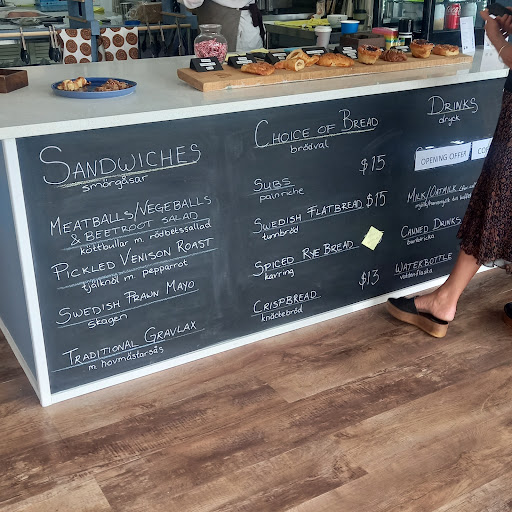 SANDWICHES
smörgåsar
MEATBALLS/VEGEBALLS
& BEETROOT SALAD
köttbullar m. rödbetssallad
PICKLED VENISON ROAST
tjälknöl m. pepparrot
SWEDISH PRAWN MAYO
skagen
TRADITIONAL GRAVLAX
m. hovmästarsås
CHOICE OF BREAD
brödval
$15
SUBS
painriche
$15
SWEDISH FLATBREAD
tunnbröd
SPICED RYE BREAD
kavring
$13
CRISPBREAD
knäckebröd
DRINKS
dryck
OPENING OFFER
MILK/OATMILK
CANNED DRINKS
WATERBOTTLE